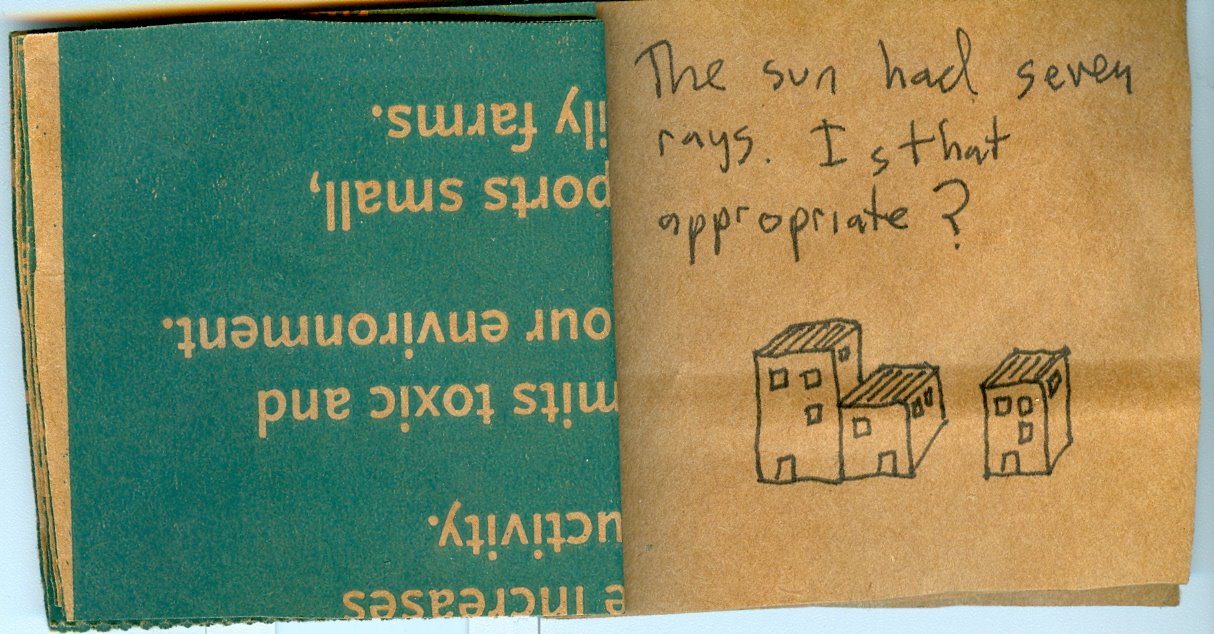 e increases
uctivity.
mits toxic and
our environment.
ports small,
ily farms.
The sun had seven
rays. Is that
appropriate?